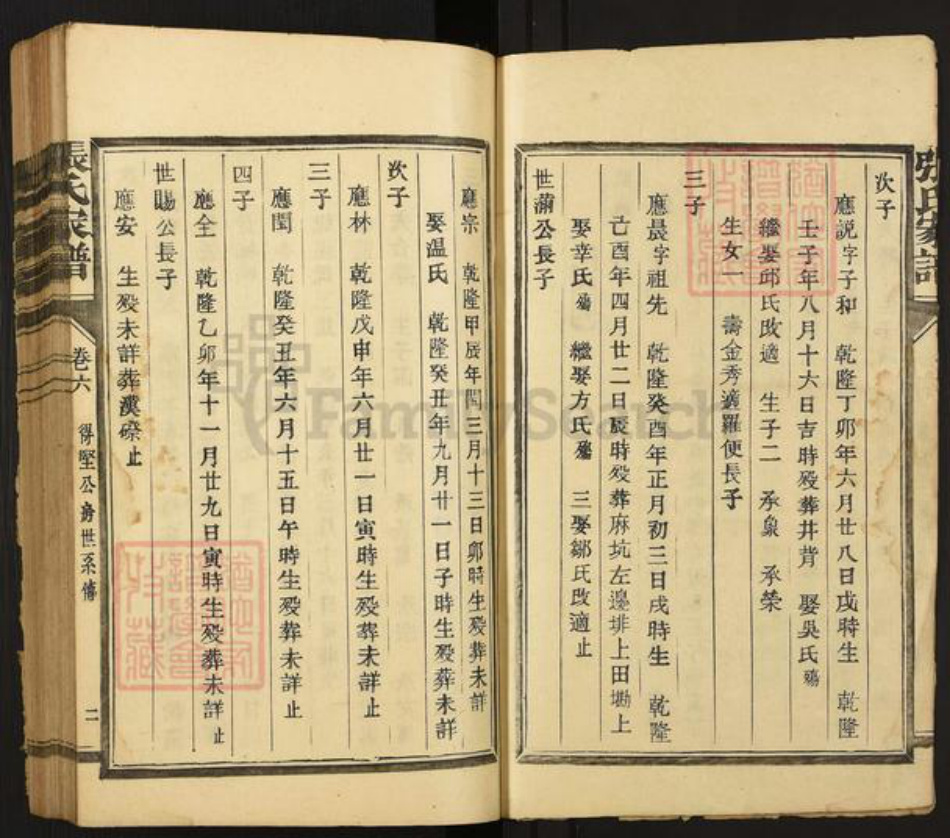 次子
應説字子和 乾隆丁卯年六月廿八日戌時生 乾隆
壬子年八月十六日吉時殁葬井背 娶吳氏殤
繼娶邱氏改適 生子二 承象 承榮
生女一 壽金秀適羅便長子
三子
應晨字祖先 乾隆癸酉年正月初三日戌時生 乾隆
亡酉年四月廿二日辰時殁葬麻坑左邊排上田墈上
娶幸氏殤 繼娶方氏殤 三娶鄒氏改適止
世蒲公長子
應宗 乾隆甲辰年閏三月十三日卯時生殁葬未詳
娶温氏 乾隆癸丑年九月廿一日子時生殁葬未詳
次子
應林 乾隆戊申年六月廿一日寅時生殁葬未詳止
三子
應閏 乾隆癸丑年六月十五日午時生殁葬未詳止
四子
應全 乾隆乙卯年十一月廿九日寅時生殁葬未詳止
世賜公長子
應安 生殁未詳葬漢磜止
張氏家譜
卷六
得堅公房世系傳
二
張氏家譜
FamilySearch